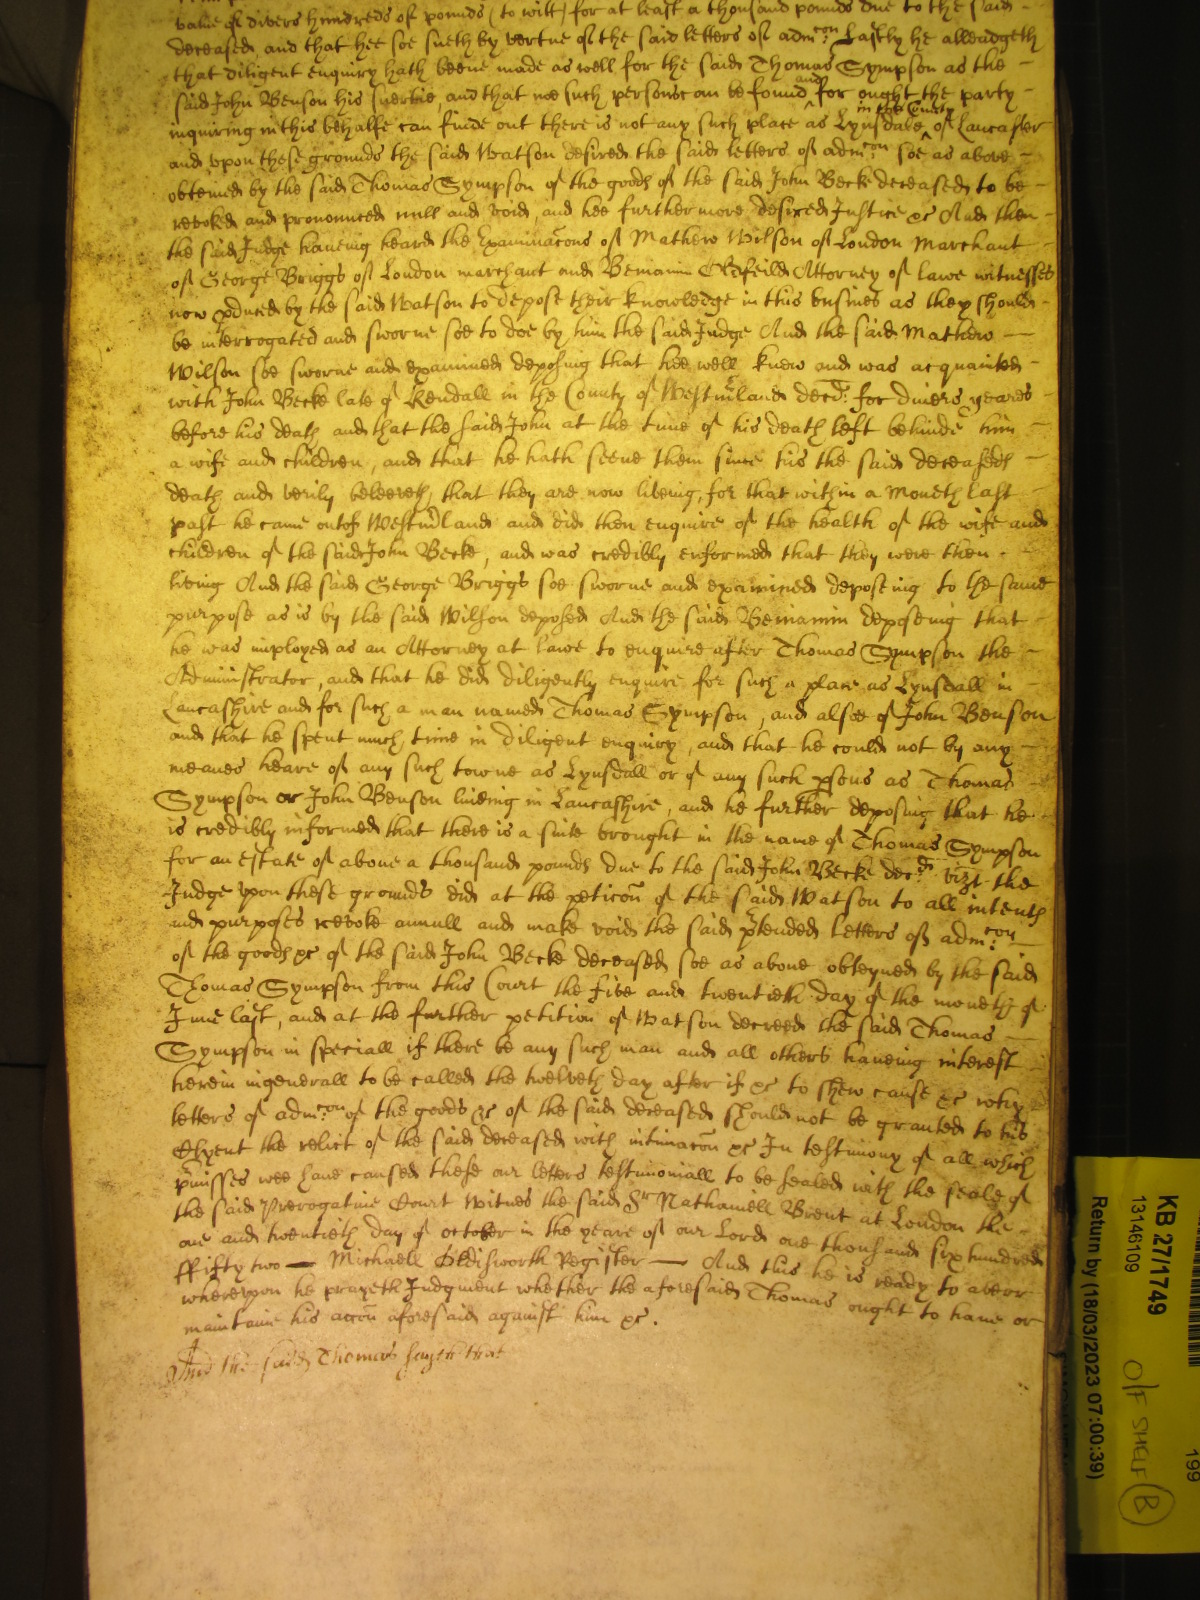 value of divers hundreds of pounds (to witt) for at least a thousand pounds due to the said
deceased, and that hee soe sueth by vertue of the said letters of admcon: Lastly he alleadgeth
that diligent enquiry hath beene made as well for the said Thomas Sympson as the
said John Benson his suertie, and that noe such persons can be found and for ought the party
inquiring in this behalfe can finde out there is not any such place as Lynsdale in the County of Lancaster
and vpon these grounds the said Watson desired the said letters of admcon: soe as above
obteined by the said Thomas Sympson of the goods of the said John Becke deceased to be
revoked and pronounced null and void, and hee furthermore desired Justice &c And then
the said Judge haueing heard the Examinacons of Mathew Wilson of London Marchant
of George Briggs of London marchant and Beniamin Oldfeild Attorney of lawe witnesses
now pduced by the said Watson to depose their knowledge in this busines as they should
be interrogated and sworne soe to doe by him the said Judge And the said Mathew
Wilson soe sworne and examined deposing that hee well knew and was acquainted
with John Becke late of Kendall in the County of Westmland decd: for divers yeares
before his death and that the said John at the time of his death left behinde him
a wife and children, and that he hath seene them since his the said deceaseds
death and verily beleeveth, that they are now liveing, for that within a Moneth last
past he came out of Westmland and did then enquire of the health of the wife and
children of the said John Becke, and was credibly enformed that they were then
living And the said George Briggs soe sworne and examined deposeing to the same
purpose as is by the said Wilson deposed And the said Beniamin deposeing that
he was imployed as an Attorney at lawe to enquire after Thomas Sympson the
Administrator, and that he did diligently enquire for such a place as Lynsdall in
Lancashire and for such a man named Thomas Sympson, and alsoe of John Benson
and that he spent much time in diligent enquiry, and that he could not by any
meanes heare of any such towne as Lynsdall or of any such psons as Thomas
Sympson or John Benson liueing in Lancashire, and he further deposing that he
is credibly informed that there is a suite brought in the name of Thomas Sympson
for an estate of aboue a thousand pounds due to the said John Becke decd: vizt the
Judge vpon these grounds did at the peticon of the said Watson to all intents
and purposes revoke annull and make void the said ptended letters of admcon:
of the goods &c of the said John Becke deceased soe as aboue obteyned by the said
Thomas Sympson from this Court the five and twentieth day of the moneth of
June last, and at the further petition of Watson decreed the said Thomas
Sympson in speciall if there be any such man and all others haueing interest
herein in generall to be called the twelveth day after if &c to shew cause &c why
letters of admcon: of the goods &c of the said deceased should not be granted to his
Clyent the relict of the said deceased with intimacon &c In testimony of all which
pmisses wee haue caused these our letters testimoniall to be sealed with the seale of
the said Prerogatiue Court Witnes the said Sr Nathaniell Brent at London the
one and twentieth day of october in the yeare of our Lord one thousand six hundred
ffifty two — Michaell Oldisworth Register — And this he is ready to averr
wherevpon he prayeth Judgment whether the aforesaid Thomas ought to haue or
maintaine his accon aforesaid against him &c.
And the said Thomas sayth that
KB 27/1749
13146109
Return by (18/03/2023 07:00:39)
O/F SHELF B
199